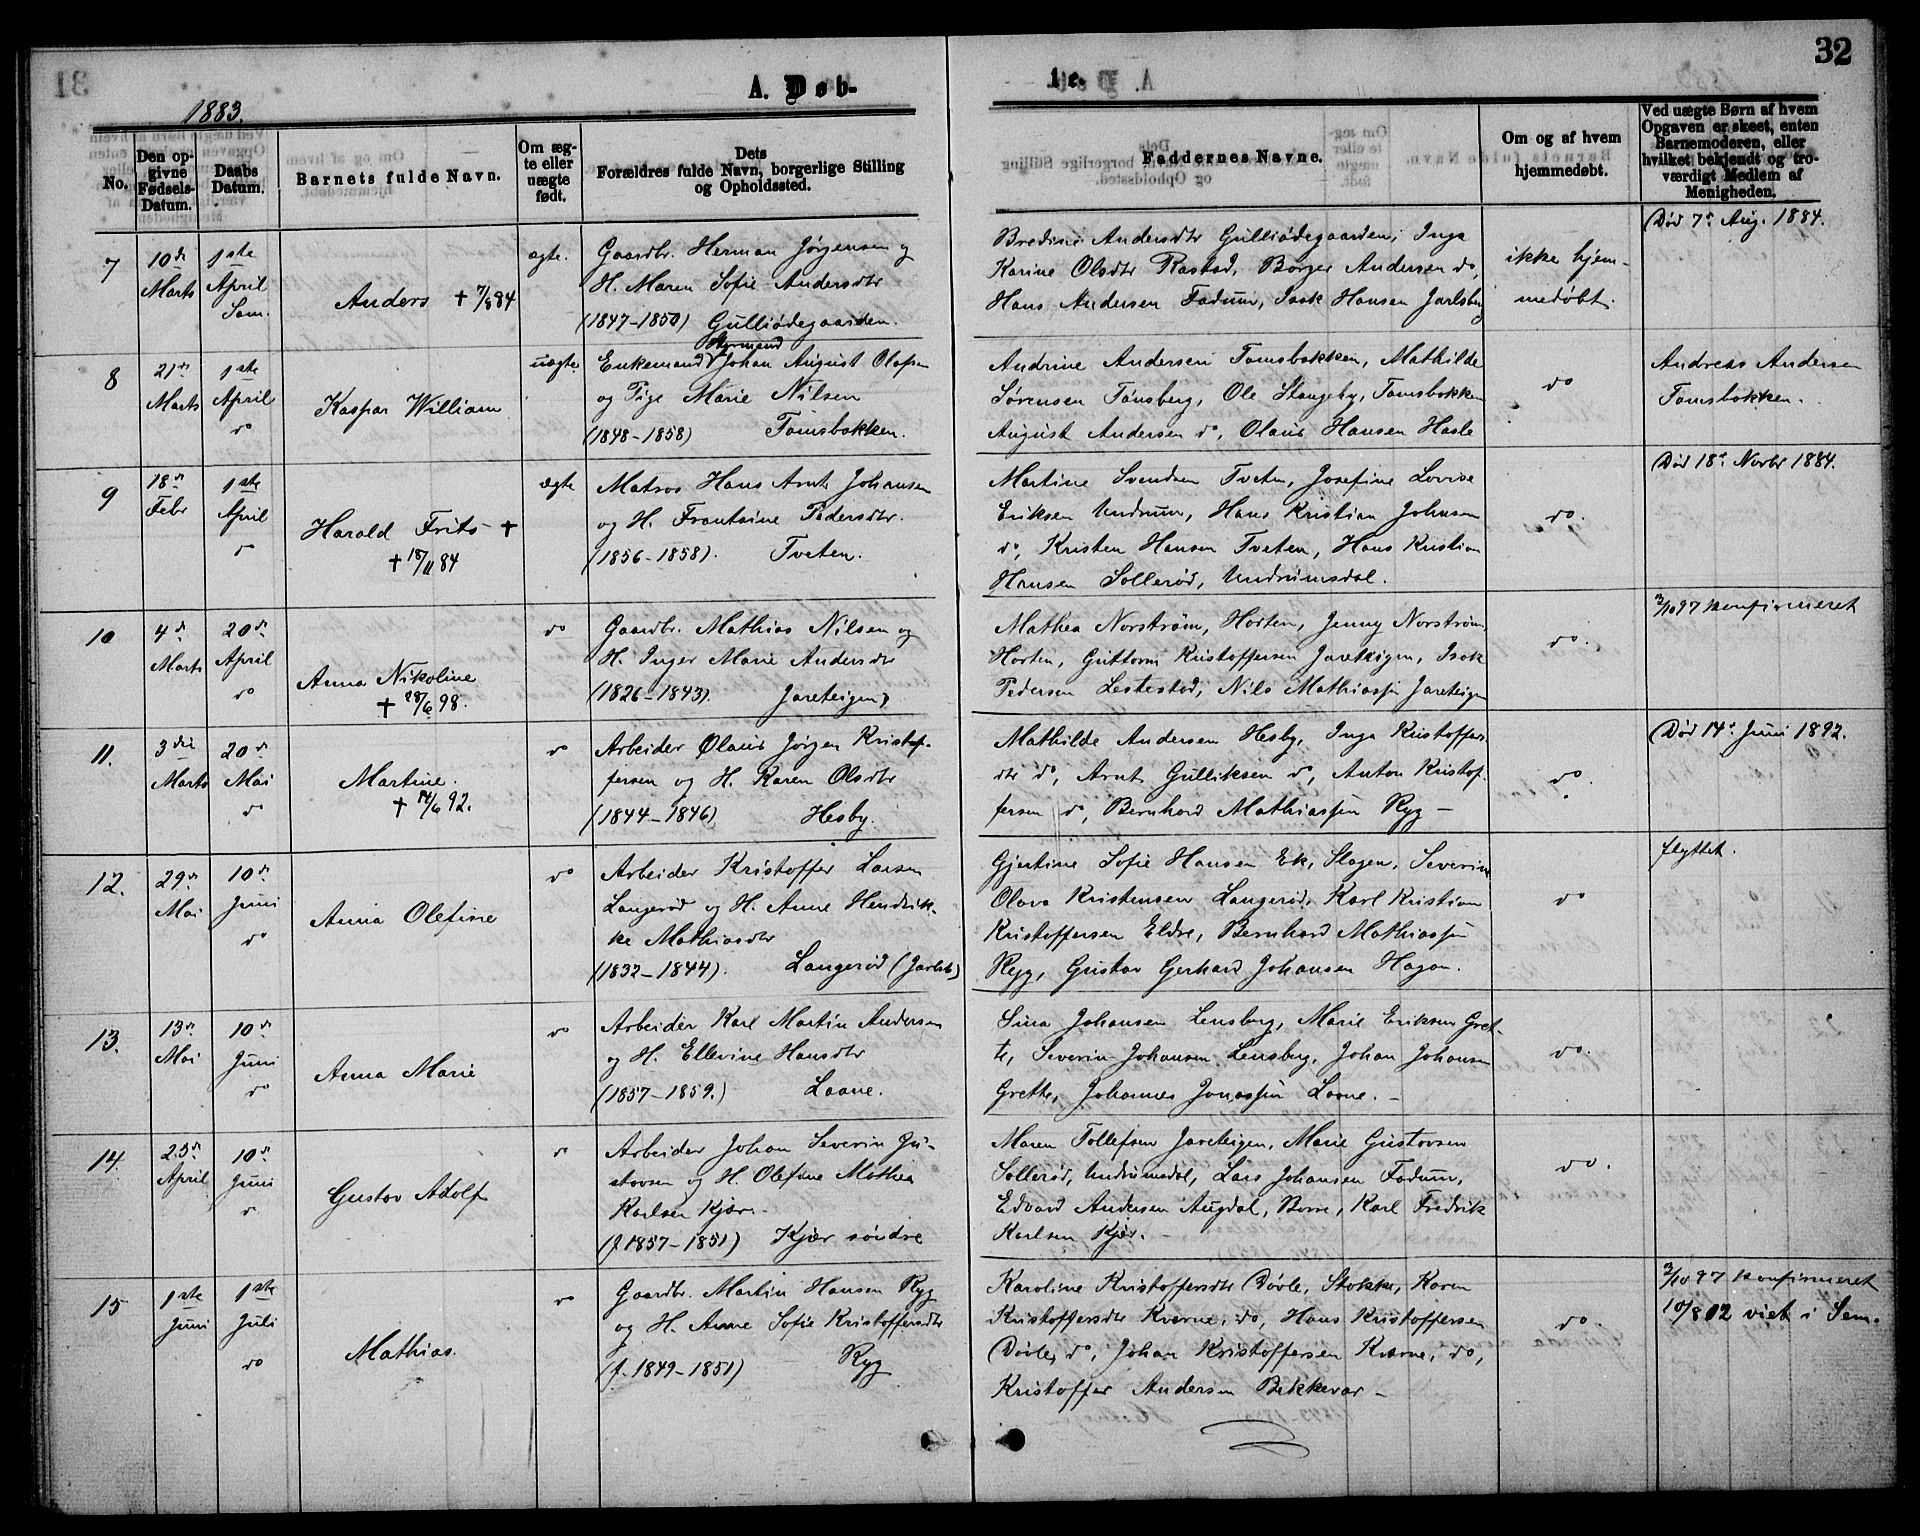 32
1883.
A. Døb-
te.
No.
Den op-
givne
Fødsels-
Datum.
Daabs
Datum.
Barnets fulde Navn.
Om æg-
te eller
uægte
født.
Dets
Forældres fulde Navn, borgerlige Stilling
og Opholdssted.
Faddernes Navne.
Om og af hvem
hjemmedøbt.
Ved uægte Børn af hvem
Opgaven er skeet, enten
Barnemoderen, eller
hvilket bekjendt og tro-
værdigt Medlem af
Menigheden.
7
10de
Marts
1ste
April
Sem.
Anders + 7/8 84
ægte.
Gaardbr. Herman Jørgensen og
H. Maren Sofie Andersdtr
(1847-1850) Gulliødegaarden.
Bredine Andersdtr Gulliødegaarden, Inga
Karine Olsdtr Rastad, Borger Andersen do,
Hans Andersen Fadum, Isak Hansen Jarlsberg
ikke hjem-
medøbt.
Død 7de Aug. 1884.
8
21de
Marts
1ste
April
do
Kaspar William
uægte
Styrmand
Enkemand Johan August Olafsen
og Pige Marie Nilsen
(1848-1858) Tomsbakken.
Andrine Andersen Tomsbakken, Mathilde
Sørensen Tønsberg, Ole Stangeby, Tomsbakken
August Andersen do, Olaus Hansen Hasle
do
Andreas Andersen
Tomsbakken.
9
18de
Febr
1ste
April
do
Harald Frits +
+ 18/11 84
ægte
Matros Hans Arnt Johansen
og H. Frantsine Pedersdtr.
(1856-1858). Tveten.
Martine Svendsen Tveten, Josefine Lovise
Eriksen Undrum, Hans Kristian Johnsen
do, Kristen Hansen Tveten, Hans Kristian
Hansen Sollerød, Undrumsdal.
do.
Død 18de Novbr 1884.
10
4de
Marts
20de
April
do
Anna Nikoline
+ 28/6 98.
do
Gaardbr. Mathias Nilsen og
H. Inger Marie Andersdtr
(1826-1843). Jareteigen
Mathea Norstrøm, Horten, Jenny Norstrøm
Horten, Guttorm Kristoffersen Jareteigen, Isak
Pedersen Lestestad, Nils Mathiassen Jareteigen
do.
3/10 97 konfirmeret
11.
3die
Marts
20de
Mai
do
Martine.
+ 14/6 92.
do
Arbeider Olaus Jørgen Kristof-
fersen og H. Karen Olsdtr
(1844-1846) Hesby.
Mathilde Andersen Hesby, Inga Kristoffers
dtr do, Arnt Gulliksen do, Anton Kristof-
fersen do, Bernhard Mathiassen Ryg -
do.
Død 14de Juni 1892.
12.
29de
Mai
10de
Juni
do
Anna Olefine
do
Arbeider Kristoffer Larsen
Langerød og H. Anne Hendrik-
ke Mathiasdtr
(1832-1844). Langerød (Jarlsb)
Gjertine Sofie Hansen Ek, Slagen, Severin
Olava Kristensen Langerød, Karl Kristian
Kristoffersen Eldre, Bernhard Mathiassen
Ryg, Gustav Gerhard Johansen Hagan.
do
flyttet.
13.
13de
Mai
10de
Juni
do
Anna Marie
do
Arbeider Karl Martin Andersen
og H. Ellevine Hansdtr
(1857-1859.) Laane.
Sina Johansen Lensberg, Marie Eriksen Gret-
te, Severin Johansen Lensberg, Johan Johansen
Grette, Johannes Jonassen Laane. -
do.
14.
25de
April
10de
Juni
do
Gustav Adolf
do
Arbeider Johan Severin Gu-
stavsen og H. Olefine Mathea
Karlsen Kjær.
(f. 1857-1851) Kjær søndre
Maren Tollefsen Jareteigen, Marie Gustavsen
Sollerød, Undrumsdal, Lars Johansen Fadum,
Edvard Andersen Augdal, Borre, Karl Fredrik
Karlsen Kjær. -
do.
15
1ste
Juni
1ste
Juli
do
Mathias.
do
Gaardbr. Martin Hansen Ryg
og H. Anne Sofie Kristoffersdtr
(f. 1849-1851) Ryg
Karoline Kristoffersdtr Døvle, Stokke, Karen
Kristoffersdtr Kværne, do, Hans Kristoffersen
Døvle, do, Johan Kristoffersen Kværne, do,
Kristoffer Andersen Bekkevar -
do.
3/10 97 konfirmeret
10/8 02 viet i Sem.